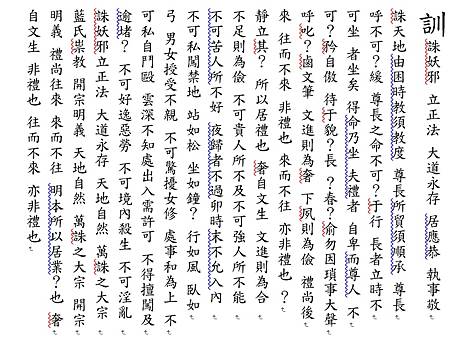 訓 誅妖邪 立正法 大道永存 居應恭 執事敬
誅天地由困時教須教度 尊長所貿須順承 尊長
呼不可?緩 尊長之命不可?于行 長者立時不
可坐 者坐矣 得命乃坐 夫禮者 自卑而尊人 不
可?矜自傲 待于貌?長 ?春?俞勿因瑣事大聲
呼叱?齒文筆 文進則為奢 下夙則為儉 禮尚後
來 往而不來 非禮也 來而不往 亦非禮也 ?
靜立其? 所以居禮也 奢自文生 文進則為合
不足則為儉 不可貴人所不及不可強人所不能
不可苦人所不好 夜歸者不過卯時末不允入內
不可私闖禁地 站如松 坐如鐘? 行如風 臥如
弓 男女授受不親 不可驚擾女修 處事和為上 不
可私自鬥毆 雲深不知處出入需許可 不得擅闖及
逾堵? 不可好逸惡勞 不可境內殺生 不可淫亂
誅妖邪立正法 大道永存 天地自然 萬誅之大宗
藍氏崇教 開宗明義 天地自然 萬誅之大宗 開宗
明義 禮尚往來 來而不往 明本所以居業?也 奢
自文生 非禮也 往而不來 亦非禮也